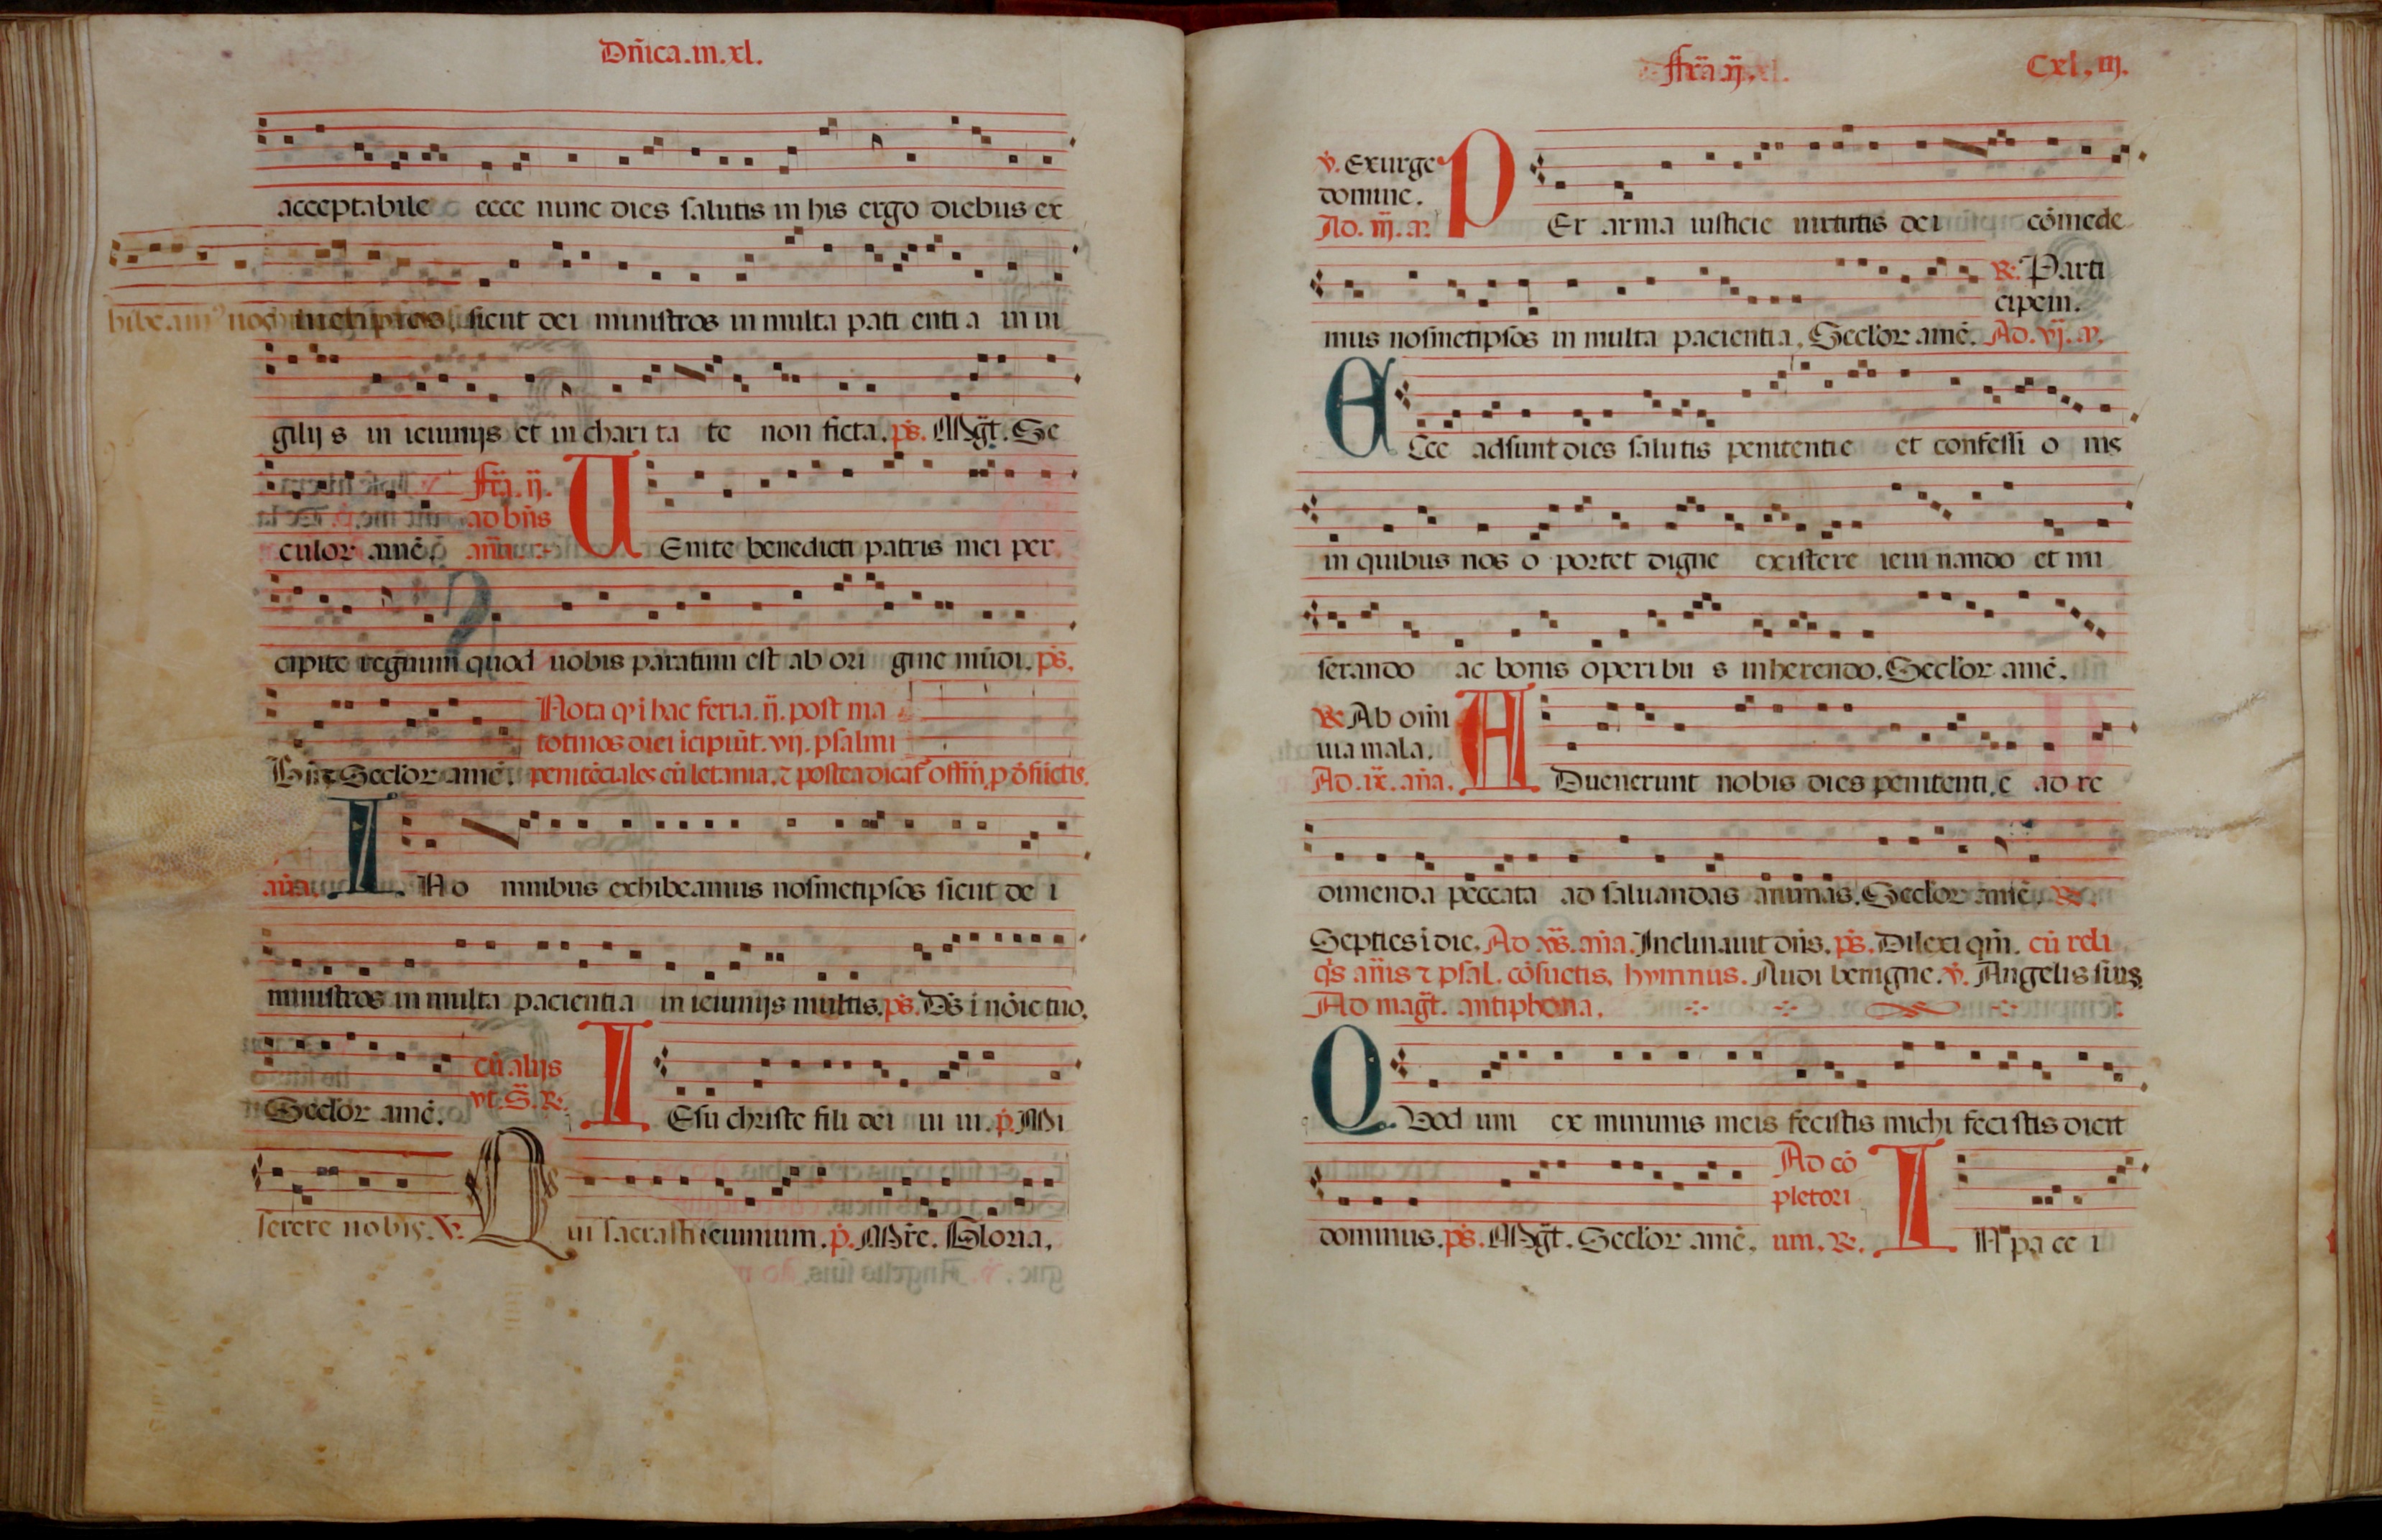 Dñica.in.xl.
acceptabile ecce nunc dies salutis in his ergo diebus ex
hibeam⁹ nos metipsos, sicut dei ministros in multa pati enti a in ui
gilijs in ieiunijs et in chari ta te non ficta. ps. Mgt. Se
culor amē. fr̄a. ij. ad bñs aña. U Enite benedicti patris mei per
cipite regnum quod uobis paratum est ab ori gine mūdi. ps.
Nota q i hac feria. ij. post ma
totinos diei icipiūt. vij. psalmi
Bñt Seclor amē. penitēciales cū letania. ⁊ postea dicat
aña. I No mnibus exhibeamus nosmetipsos sicut de i
ministros in multa pacientia in ieiunijs multis. ps. Ds i nōie tuo.
Seclor amē. cū alijs vt. S. R. I Esu christe fili dei ui ui. p. Mi
serere nobis. V. Q ui sacrasti ieiunium. p. Mre. Gloria.
fr̄a ij. Cxl. iij.
v. Exurge
domine.
Ad. iij. a. P Er arma iusticie uirtutis dei cōmede
R. Parti
cipem.
mus nosmetipsos in multa pacientia. Seclor amē. Ad. vj. a.
E Cce adsunt dies salutis penitentie et confessi o nis
in quibus nos o portet digne existere ieiu nando et mi
serando ac bonis operibu s inherendo. Seclor amē.
R. Ab omi
uia mala.
Ad. ix. aña. A Duenerunt nobis dies penitenti e ad re
dimenda peccata ad saluandas animas. Seclor amē. R.
Septies i die. Ad vs. aña. Inclinauit dñs. ps. Dilexi qm̄. cū reli
qs añis ⁊ psal. cōsuetis. hymnus. Audi benigne. v. Angelis suis.
Ad magt. antiphona.
Q Vod uni ex minimis meis fecistis michi feci stis dicit
dominus. ps. Mgt. Seclor amē. Ad cō pletori um. R. I N pa ce i